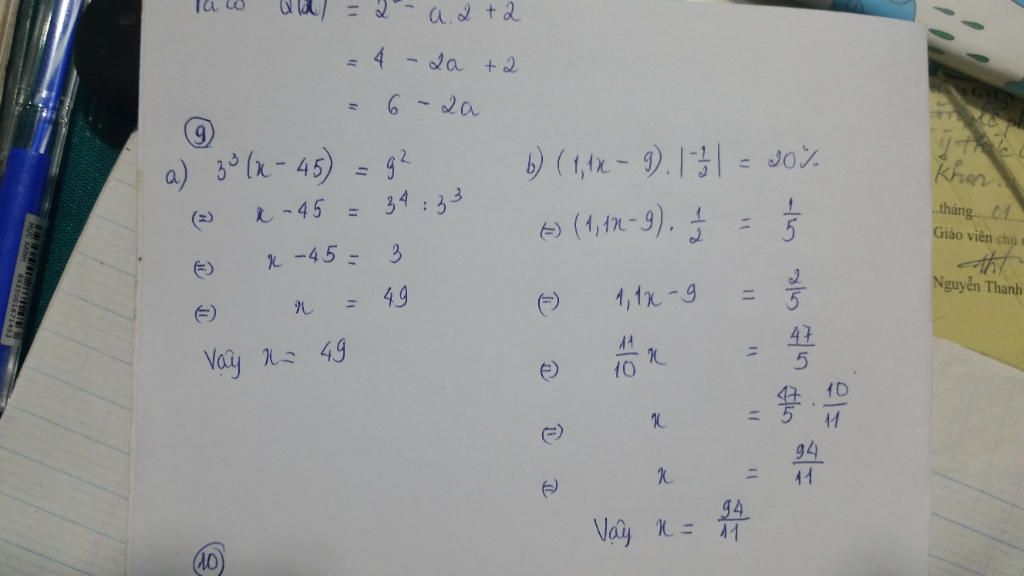 Ta có Q(2) = 2² - a.2 + 2
= 4 - 2a + 2
= 6 - 2a
9
a) 3³(x - 45) = 9²
(=) x - 45 = 3⁴ : 3³
(=) x - 45 = 3
(=) x = 49
Vậy x = 49
b) (1,1x - 9) . |-1/2| = 20%
(=) (1,1x - 9) . 1/2 = 1/5
(=) 1,1x - 9 = 2/5
(=) 11/10 x = 47/5
(=) x = 47/5 . 10/11
(=) x = 94/11
Vậy x = 94/11
10
GVCN
khen...
..tháng.. 01
Giáo viên chủ
Nguyễn Thanh